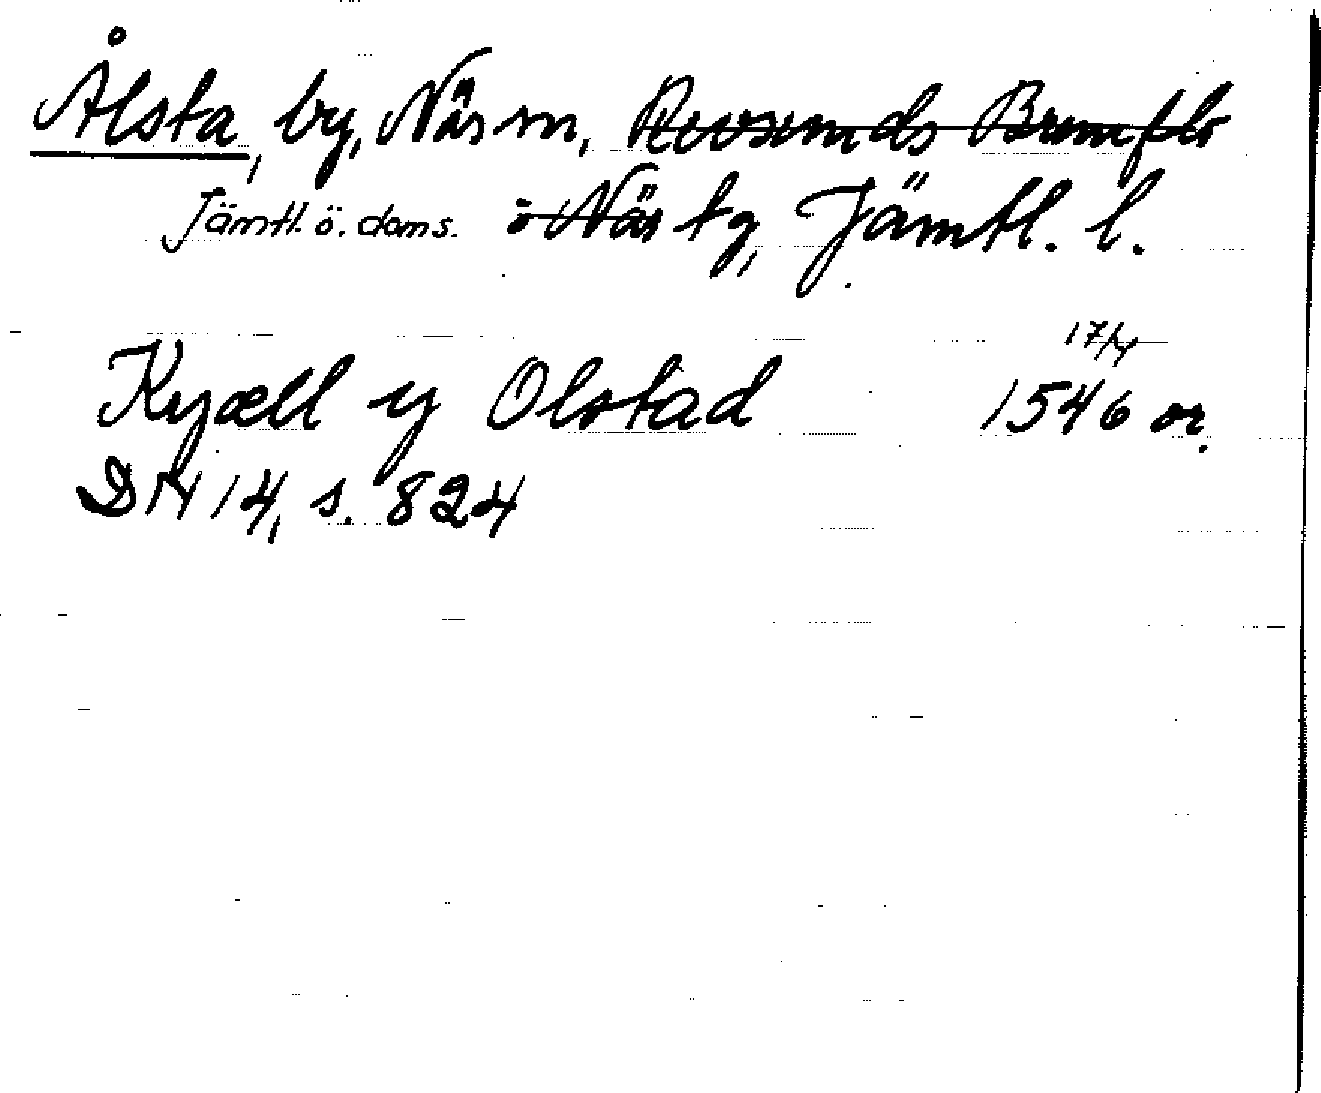 Ålsta, by, Näs sn, Revsunds Brunflo
Jämtl. ö. doms. o Näs tg, Jämtl. l.
17/4
Kyæll y Olstad 1546 or.
DN 14, s. 824